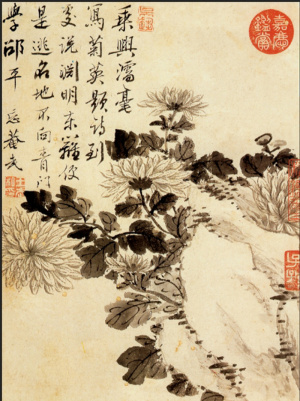 乘興濡毫
寫菊英題詩到
處說淵明東籬便
是逃名地不向青門
學邵平
嘉慶鑑賞